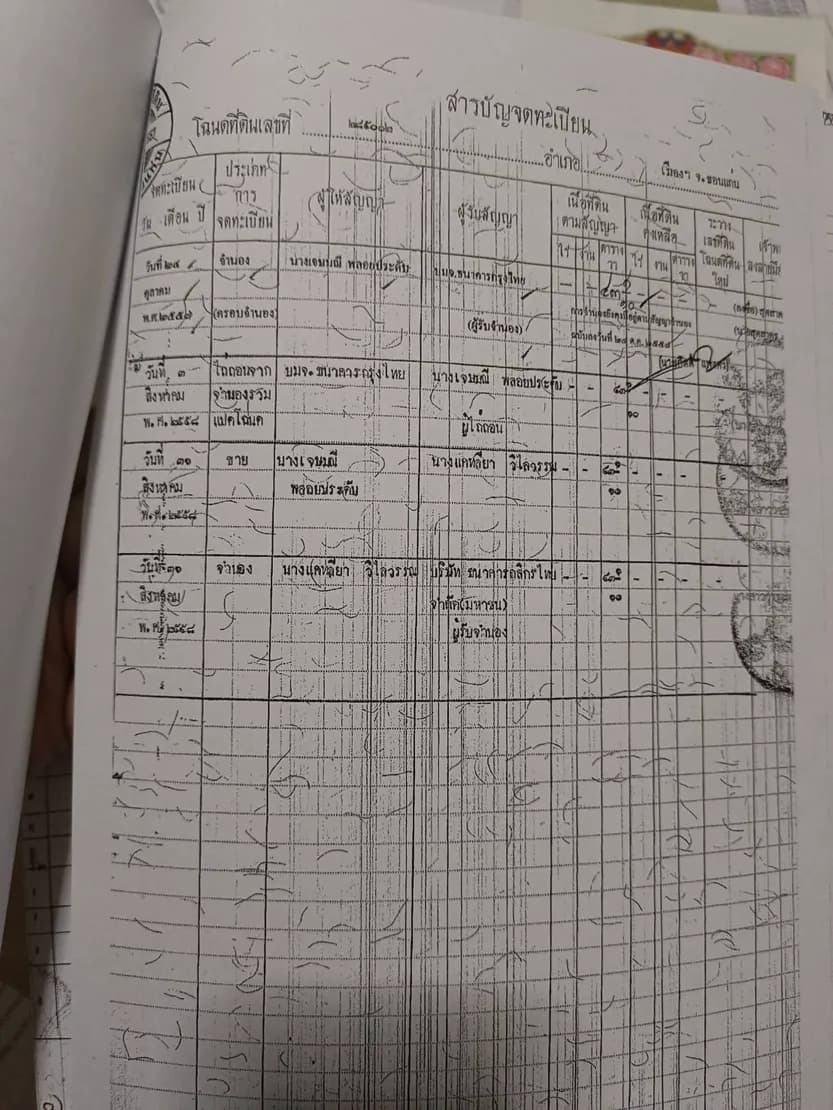 สารบัญจดทะเบียน
โฉนดที่ดินเลขที่ ๒๘๕๐๐๒ อำเภอ เมืองฯ จ.ขอนแก่น
จดทะเบียน วัน เดือน ปี
ประเภทการจดทะเบียน
ผู้ให้สัญญา
ผู้รับสัญญา
เนื้อที่ดินตามสัญญา
ไร่ งาน ตารางวา
เนื้อที่ดินคงเหลือ
ไร่ งาน ตารางวา
ระวางเลขที่ดินโฉนดที่ดินใหม่
วันที่ ๒๔ จำนอง นางเจษมณี พลอยประดับ บมจ.ธนาคารกรุงไทย - -
ตุลาคม
พ.ศ.๒๕๕๗ (ครอบจำนอง) (ผู้รับจำนอง)
การจำนองยังคงมีอยู่ตามสัญญาจำนอง
วันที่ ๓ ไถ่ถอนจาก บมจ.ธนาคารกรุงไทย นางเจษมณี พลอยประดับ - -
สิงหาคม จำนองรวม
พ.ศ.๒๕๕๘ แปดโฉนด ผู้ไถ่ถอน ๑๐
วันที่ ๓๑ ขาย นางเจษมณี นางแคทลียา วิไลวรรณ - -
สิงหาคม พลอยประดับ ๑๐
พ.ศ.๒๕๕๘
วันที่ ๓๑ จำนอง นางแคทลียา วิไลวรรณ บริษัท ธนาคารกสิกรไทย - -
สิงหาคม จำกัด(มหาชน) ๑๐
พ.ศ.๒๕๕๘ ผู้รับจำนอง